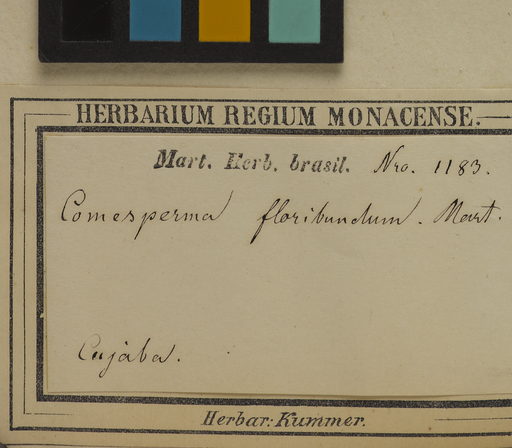 HERBARIUM REGIUM MONACENSE.
Mart. Herb. brasil. Nro. 1183.
Comesperma floribundum. Mart.
Cujàba.
Herbar: Kummer.